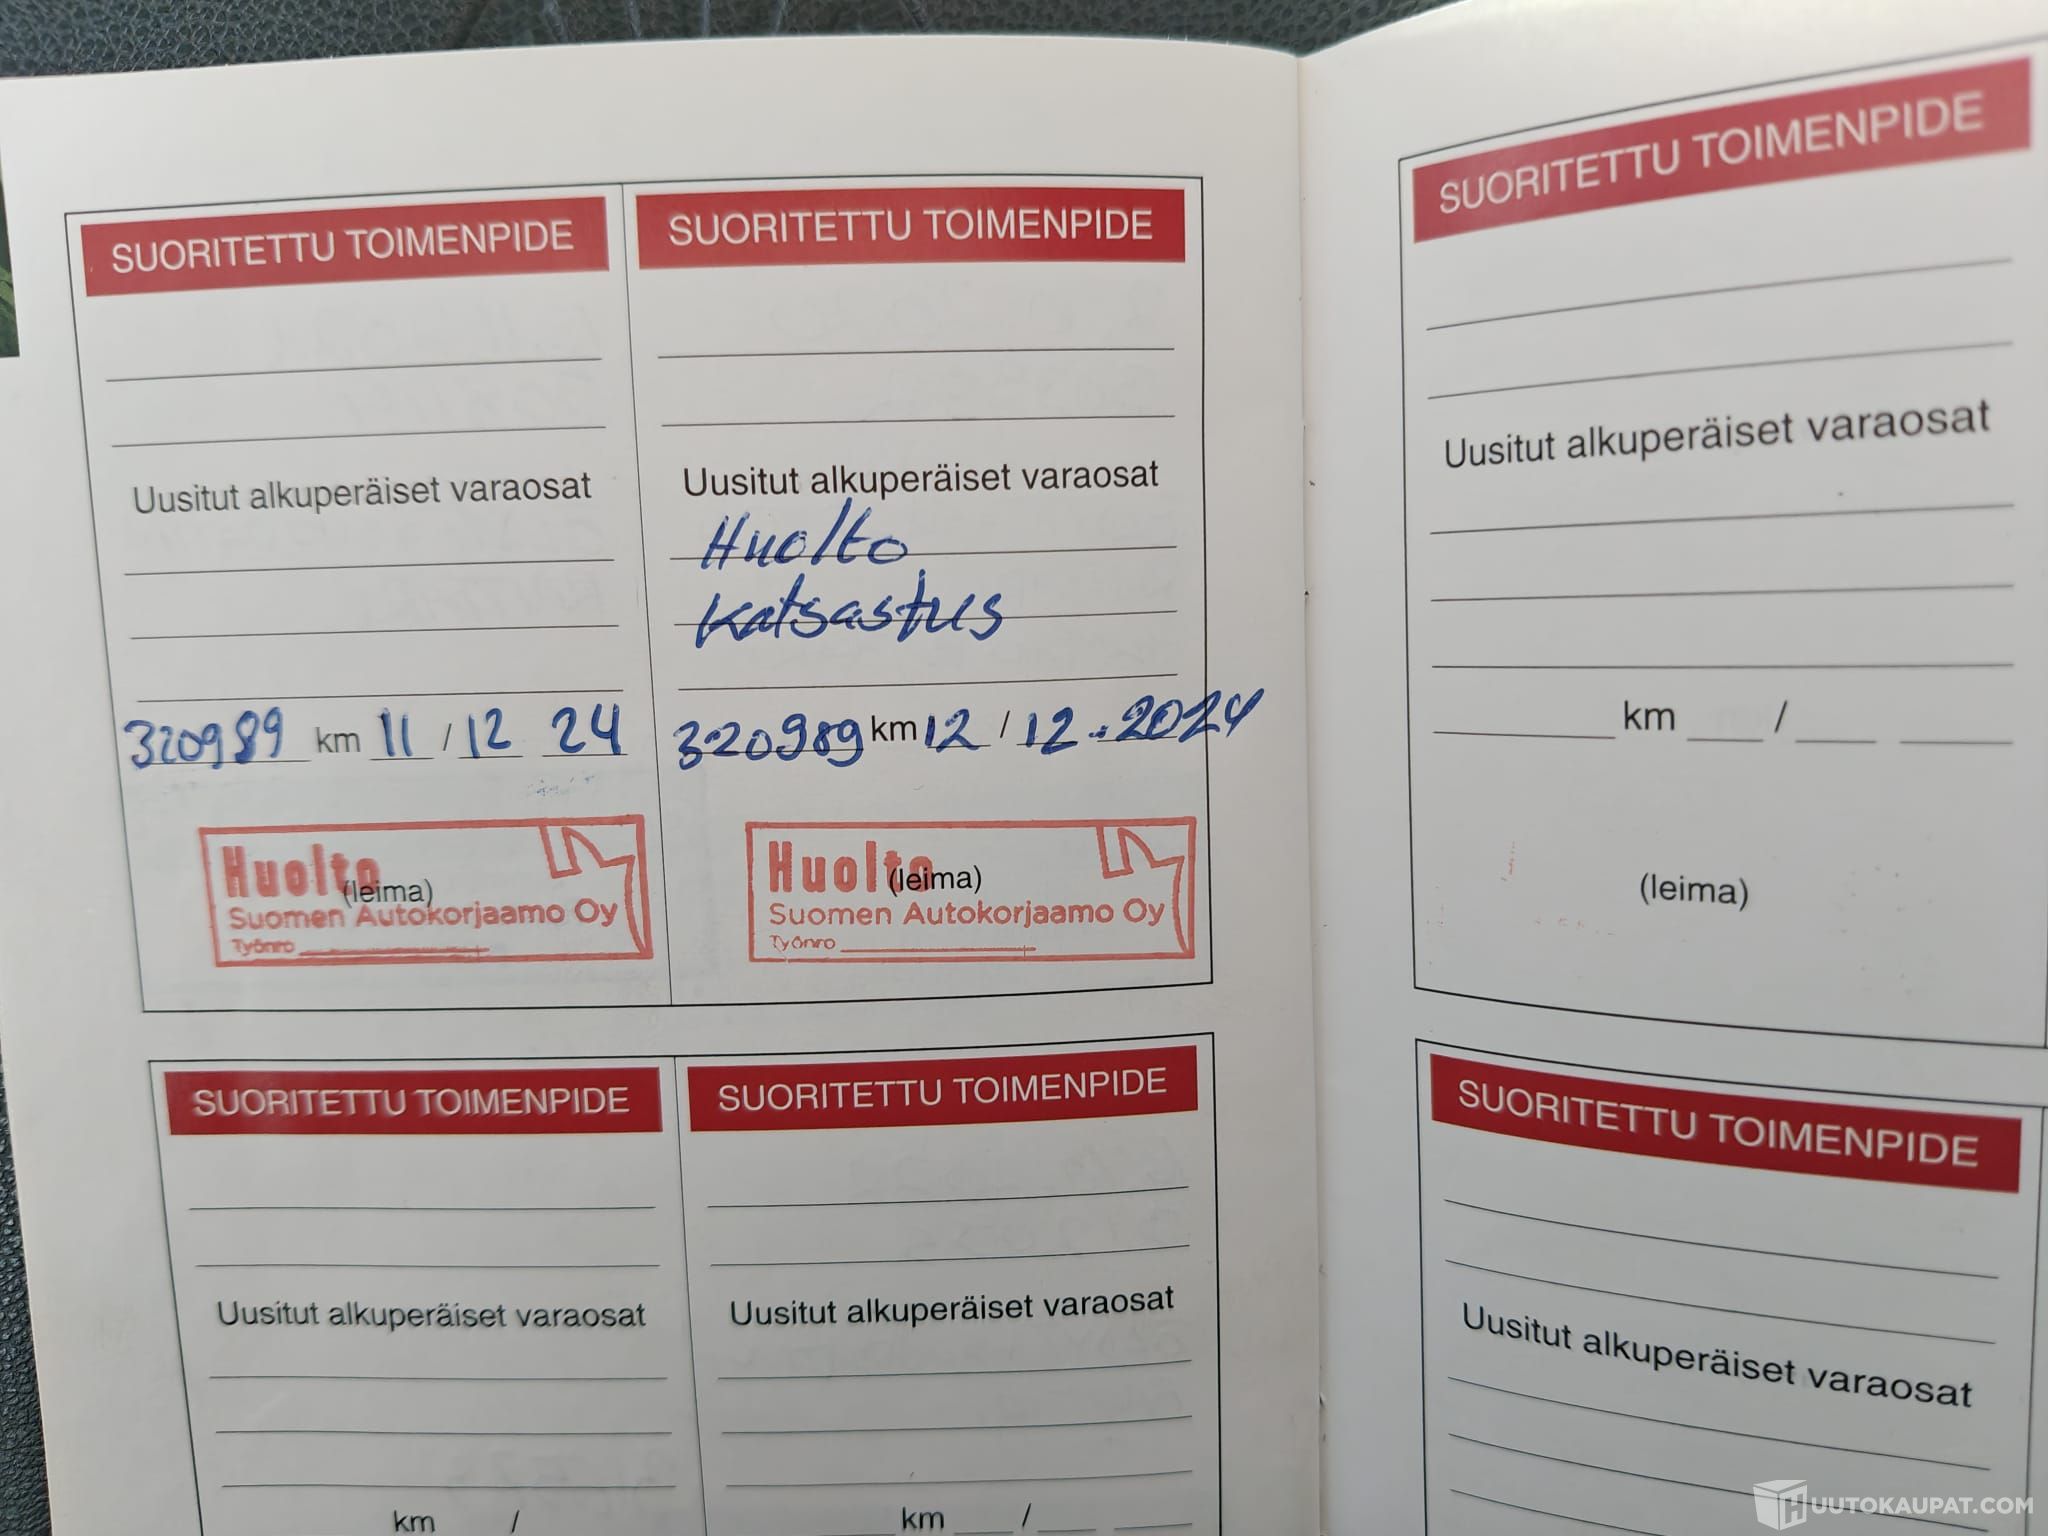 SUORITETTU TOIMENPIDE
Uusitut alkuperäiset varaosat
320989 km 11 / 12 24
Huolto
(leima)
Suomen Autokorjaamo Oy
Työnro
SUORITETTU TOIMENPIDE
Uusitut alkuperäiset varaosat
Huolto
Katsastus
320989 km 12 / 12.2024
Huolto
(leima)
Suomen Autokorjaamo Oy
Työnro
SUORITETTU TOIMENPIDE
Uusitut alkuperäiset varaosat
km /
SUORITETTU TOIMENPIDE
Uusitut alkuperäiset varaosat
km /
SUORITETTU TOIMENPIDE
Uusitut alkuperäiset varaosat
km /
(leima)
SUORITETTU TOIMENPIDE
Uusitut alkuperäiset varaosat
HUUTOKAUPAT.COM